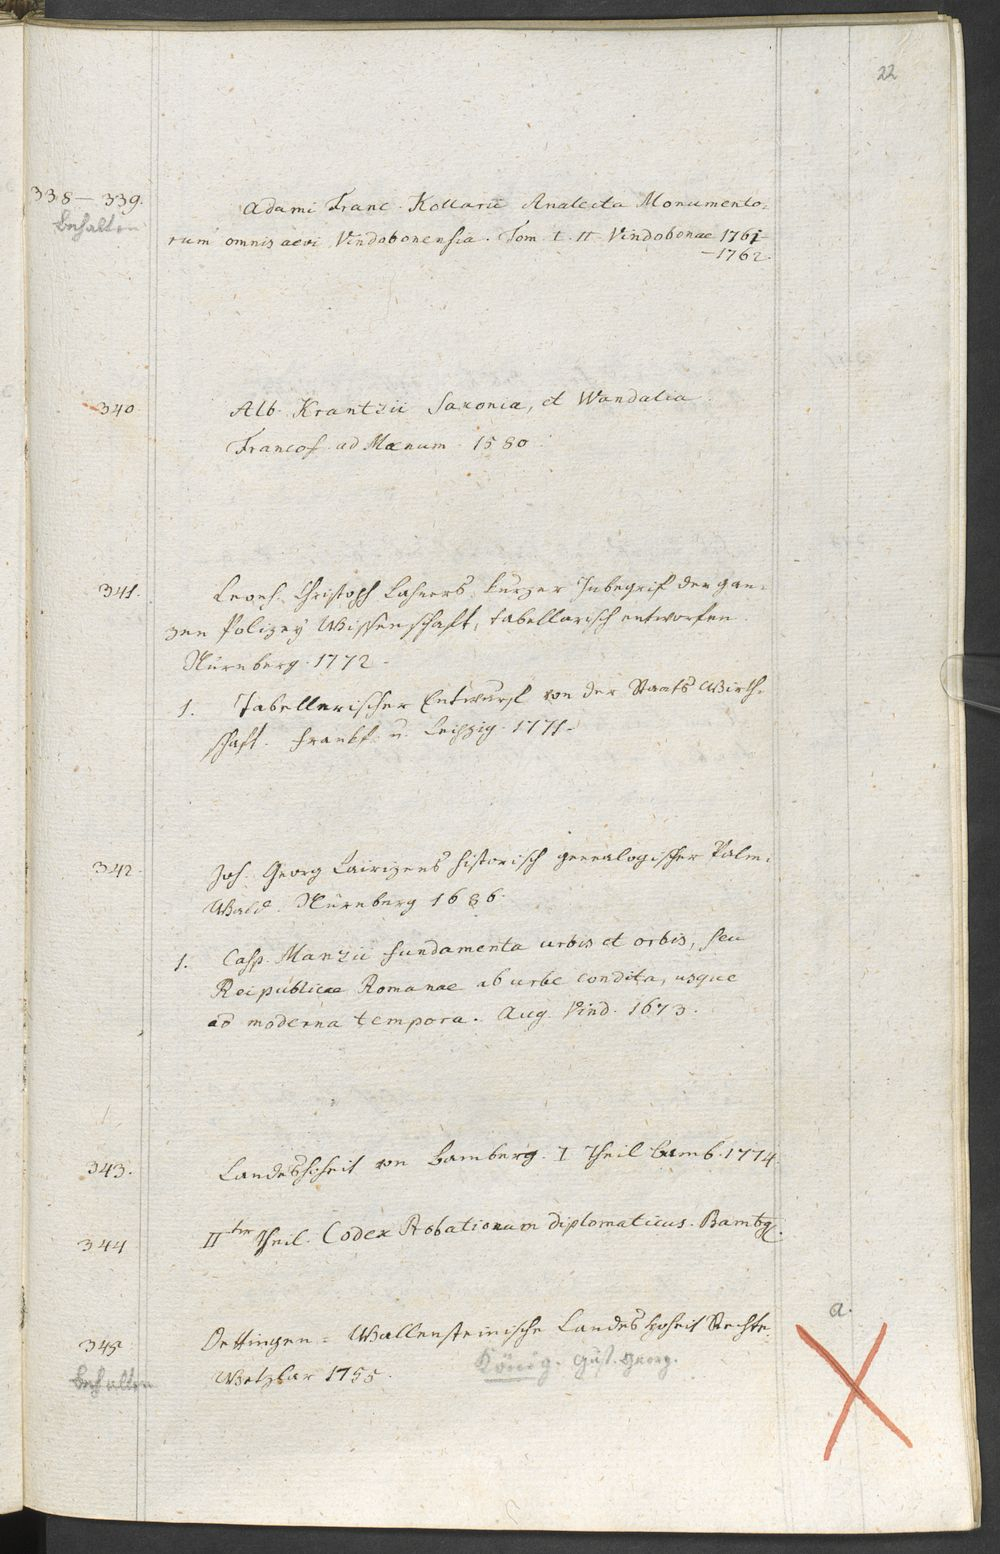 22
338 – 339.
behalten
Adami Franc. Kollarii Analecta Monumento-
rum omnis aevi Vindobonensia. Tom. I. II. Vindobonae 1761
– 1762.
340.
Alb. Krantzii Saxonia, et Wandalia.
Francof. ad Mænum. 1580.
341.
Leonh. Christoph Lahners kurzer Inbegrif der gan-
zen Polizey Wissenschaft, tabellarisch entworfen.
Nürnberg. 1772.
1. Tabellarischer Entwurf von der Staats Wirth-
schaft. Frankf. u. Leipzig. 1771.
342.
Joh. Georg Lairizens historisch genealogischer Palm-
Wald. Nürnberg 1686.
1. Casp. Manzii fundamenta urbis et orbis, seu
Reipublicae Romanae ab urbe condita, usque
ad moderna tempora. Aug. Vind. 1673.
343.
Landeshoheit von Bamberg. I Theil Bamb. 1774.
344
IIter Theil. Codex Probationum diplomaticus. Bambg.
a.
345
Oettingen-Wallensteinische Landeshoheit Rechte
behalten
Wetzlar 1755.
König. Gust. Georg.